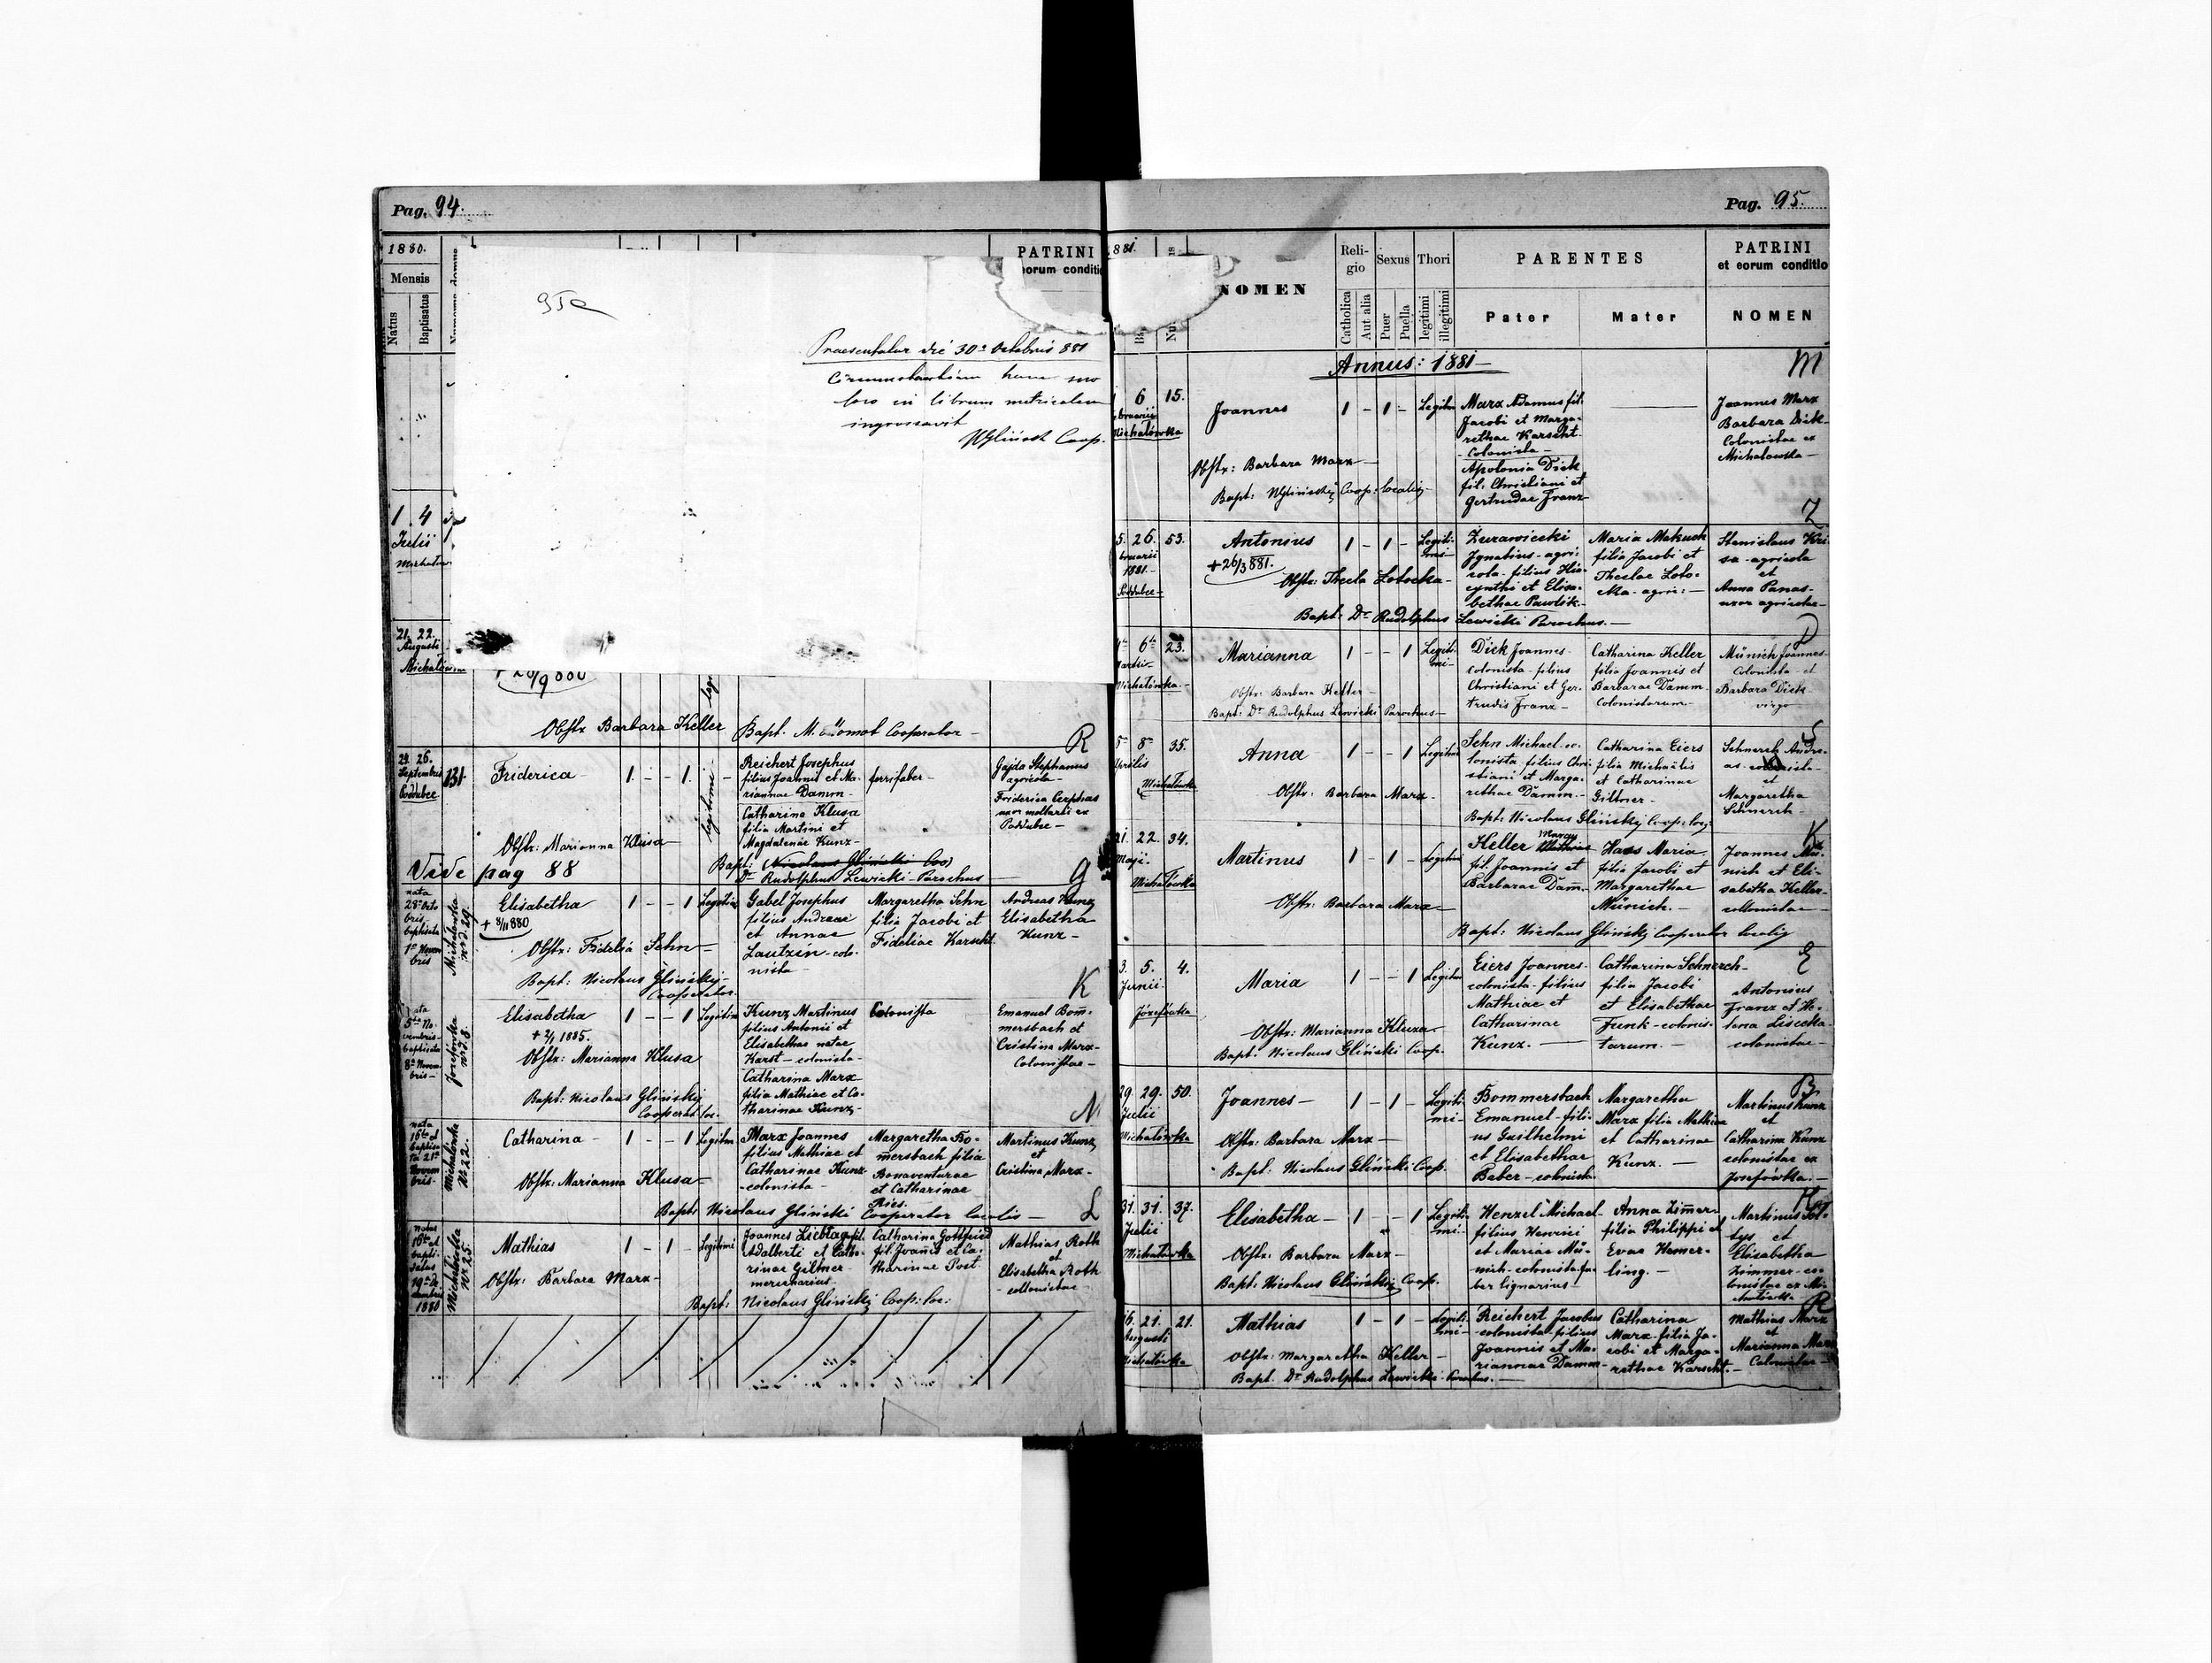 Pag. 94.
1880.
Mensis
Natus
Baptisatus
PATRINI
eorum conditi
95a
Praesentatur die 30a Octobris 881
Circumstantiam hanc suo
loco in librum metricalem
ingrossavit
NGliński Coop.
1. 4
Julii
21. 22.
Augusti
Michałówka
+ 26/9 880
Obstx Barbara Keller
Bapt. M. Cooperator
R
24. 26.
Septembris
Poddubce
131.
Friderica
1 - - 1
legitimi
Reichert Josephus
filius Joannis et Ma-
riannae Damm-
Catharina Klusa
filia Martini et
Magdalenae Kunz-
ferrifaber-
Gajda Stephanus
agricola-
Friderica
uxor ex
Poddubce-
Obstx: Marianna Klusa-
Bapt: Nicolaus Gliński Coo
Dr Rudolphus Lewicki-Parochus
Vide pag 88
G
nata
28a Octo
bris
baptisata
1a Novem
bris
Michałówka
Nr d. 29.
Elisabetha
+ 8/11 880
1 - - 1
Legitim
Gabel Josephus
filius Andreae
et Annae
Lautzin-colo-
nista-
Margaretha Sehn
filia Jacobi et
Fideliae Karscht.
Andreas Kunz
Elisabetha
Kunz-
Obstx: Fidelia Sehn-
Bapt. Nicolaus Gliński-
Cooperator
K
nata
5ta No-
vembris-
baptisata
8a Novem-
bris-
Josefówka
Nr d. 8.
Elisabetha
+ 2/1 1885.
1 - - 1
Legitim
Kunz Martinus
filius Antonii et
Elisabethae natae
Karst-colonista-
Catharina Marx-
filia Mathiae et Ca-
tharinae Kunz-
Colonista
Emanuel Bom-
mersbach et
Cristina Marx-
Colonistae-
Obstx: Marianna Klusa
Bapt: Nicolaus Gliński
Cooperat loc.
M
nata
16ta et
baptisa
ta 21a
Novem
bris-
Michałówka
Nr 22.
Catharina-
1 - - 1
Legitim
Marx Joannes
filius Mathiae et
Catharinae Kunz
-colonista-
Margaretha Bo-
mersbach filia
Bonaventurae
et Catharinae
Ries.
Martinus Kunz
et
Cristina Marx-
Obstx: Marianna Klusa-
Bapt: Nicolaus Gliński Cooperator localis-
L
natus
16ta et
bapti-
satus
19a De
cembris
1880
Michałówka
Nr 25.
Mathias
1 - 1 -
Legitimi
Joannes Liebtag fil.
Adalberti et Catha-
rinae Giltner
mercenarius
Catharina Gottfried
fil. Joannis et Ca-
tharinae Post.
Mathias Roth
et
Elisabetha Roth
-colonistae-
Obstx: Barbara Marx-
Bapt: Nicolaus Gliński Coop: loc:
Pag. 95.
881.
NOMEN
Reli-
gio
Catholica
Aut alia
Sexus
Puer
Puella
Thori
legitimi
illegitimi
PARENTES
Pater
Mater
PATRINI
et eorum conditio
NOMEN
Annus: 1881-
M
6
15.
Michałówka
Joannes
1 - 1 -
Legitim
Marx Adamus fil.
Jacobi et Marga-
rethae Karscht.
-Colonista-
Apolonia Dick
fil. Christiani et
Gertrudae Franz-
Joannes Marx
Barbara Dick-
Colonistae ex
Michałówka-
Obstx: Barbara Marx-
Bapt: NGliński Coop: localis-
Z
5. 26.
1881.-
Poddubce-
53.
Antonius
+ 26/3 881.
1 - 1 -
Legiti-
mi-
Żurawiecki
Ignatius-agri-
cola-filius Hia-
cynthi et Elisa-
bethae Pawlik-
Maria Makuch
filia Jacobi et
Theclae Loto-
cka-agri:-
Stanislaus
sa-agricola
et
Anna Panas-
uxor agricolae-
Obstx: Thecla Lotocka-
Bapt: Dr Rudolphus Lewicki Parochus.-
D
6ta
Michałówka.-
23.
Marianna
1 - - 1
Legiti-
mi-
Dick Joannes-
colonista-filius
Christiani et Ger-
trudis Franz-
Catharina Keller
filia Joannis et
Barbarae Damm.
Colonistarum-
Münich Joannes-
Colonista et
Barbara Dick-
virgo
Obstx: Barbara Keller-
Bapt: Dr Rudolphus Lewicki Parochus-
S
5 8
Aprilis
Michałówka
35.
Anna
1 - - 1
Legitimi
Sehn Michael-co-
lonista filius Chri-
stiani et Marga-
rethae Damm.-
Catharina Eiers
filia Michaëlis
et Catharinae
Giltner-
Schnerch Andre-
as-colonista-
et
Margaretha
Schnerch-
Obstx: Barbara Marx-
Bapt: Nicolaus Gliński Coop: loc:
K
21. 22.
Maji-
Michałówka
34.
Martinus
1 - 1 -
Legitim
Keller Mathias
fil. Joannis et
Barbarae Dam.-
Hass Maria
filia Jacobi et
Margarethae
Münich.-
Joannes Mü-
nich et Eli-
sabetha Keller-
colonistae-
Obstx: Barbara Marx-
Bapt: Nicolaus Gliński Cooperator localis
E
3. 5.
Junii-
Józefówka
4.
Maria
1 - - 1
Legitim
Eiers Joannes-
colonista-filius
Mathiae et
Catharinae
Kunz.-
Catharina Schnerch-
filia Jacobi
et Elisabethae
Funk-colonis-
tarum.-
Antonius
Franz et He-
lena Lisecka
colonistae-
Obstx: Marianna Kluza-
Bapt: Nicolaus Gliński Coop.
B
29. 29.
Julii
Michałówka
50.
Joannes-
1 - 1 -
Legiti-
mi-
Bommersbach
Emanuel-fili-
us Guilhelmi
et Elisabethae
Baber-colonista.
Margaretha
Marx filia Mathiae
et Catharinae
Kunz.-
Martinus Kunz
et
Catharina Kunz
colonistae ex
Josefówka.-
Obstx: Barbara Marx-
Bapt: Nicolaus Gliński Coop.
31. 31.
Julii
Michałówka
37.
Elisabetha-
1 - 1
Legiti-
mi-
Henzel Michael-
filius Henrici
et Mariae Mü-
nich-colonista fa-
ber lignarius-
Anna Zimmer-
filia Philippi et
Evae Hemer-
ling.-
Martinus Sol-
tys et
Elisabetha
Zimmer-co-
lonistae ex Mi-
Obstx: Barbara Marx-
Bapt: Nicolaus Gliński Coop.
R
16. 21.
Augusti
Michałówka
21.
Mathias
1 - 1 -
Legiti-
mi-
Reichert Jacobus
-colonista-filius
Joannis et Ma-
riannae Damm-
Catharina
Marx-filia Ja-
cobi et Marga-
rethae Karscht.-
Mathias Marx
et
Marianna Marx
Colonistae-
Obstx: Margaretha Keller-
Bapt. Dr Rudolphus Lewicki-Parochus.-